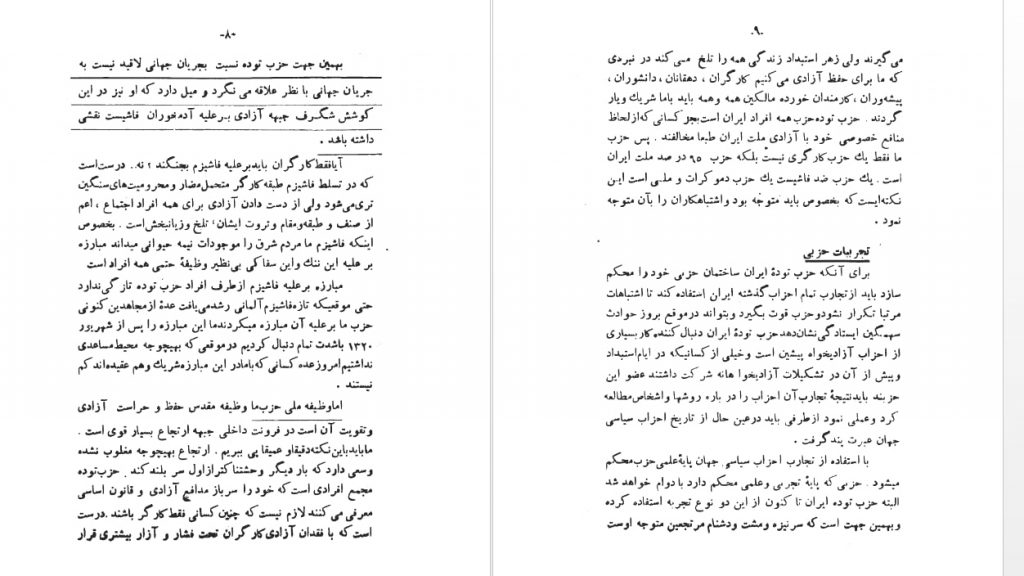 -۸۰
بهمین جهت حزب توده نسبت بجریان جهانی لاقید نیست به
جریان جهانی با نظر علاقه می نگرد و میل دارد که او نیز در این
کوشش شگرف جبهه آزادی بر علیه آدمخوران فاشیست نقشی
داشته باشد .
آیا فقط کارگران باید بر علیه فاشیزم بجنگند ؟ نه . درست است
که در تسلط فاشیزم طبقه کارگر متحمل مضار و محرومیت‌های سنگین
تری می‌شود ولی از دست دادن آزادی برای همه افراد اجتماع ، اعم
از صنف و طبقه و مقام و ثروت ایشان ، تلخ و زیانبخش است . بخصوص
اینکه فاشیزم ما مردم شرق را موجودات نیمه حیوانی میداند مبارزه
بر علیه این ننگ و این سفاکی بی‌نظیر وظیفهٔ حتمی همه افراد است
مبارزه بر علیه فاشیزم از طرف افراد حزب توده تازگی ندارد
حتی موقعیکه تازه فاشیزم آلمانی رشد می‌یافت عدهٔ از مجاهدین کنونی
حزب ما بر علیه آن مبارزه میکردند ما این مبارزه را پس از شهریور
۱۳۲۰ باشدت تمام دنبال کردیم در موقعی که بهیچوجه محیط مساعدی
نداشتیم امروز عده کسانی که با ما در این مبارزه شریك و هم عقیده‌اند کم
نیستند .
اما وظیفه ملی حزب ما وظیفه مقدس حفظ و حراست آزادی
و تقویت آن است در فرونت داخلی جبهه ارتجاع بسیار قوی است .
ما باید باین نکته دقیقاو عمیقا پی ببریم . ارتجاع بهیچوجه مغلوب نشده
وسعی دارد که بار دیگر وحشتناکتر از اول سر بلند کند . حزب توده
مجمع افرادی است که خود را سرباز مدافع آزادی و قانون اساسی
معرفی می‌کنند لازم نیست که چنین کسانی فقط کارگر باشند . درست
است که با فقدان آزادی کارگران تحت فشار و آزار بیشتری قرار
۰۹۰
می‌گیرند ولی زهر استبداد زندگی همه را تلخ می‌کند در نبردی
که ما برای حفظ آزادی می‌کنیم کارگران ، دهقانان ، دانشوران ،
پیشه‌وران ، کارمندان خورده مالکین همه و همه باید با ما شریك و یار
گردند . حزب توده حزب همه افراد ایران است بجز کسانی که از لحاظ
منافع خصوصی خود با آزادی ملت ایران طبعا مخالفند . پس حزب
ما فقط یك حزب کارگری نیست بلکه حزب ۹۵ در صد ملت ایران
است . یك حزب ضد فاشیست یك حزب دموکرات و ملی است این
نکته‌ایست که بخصوص باید متوجه بود و اشتباهکاران را بآن متوجه
نمود .
تجربیات حزبی
برای آنکه حزب تودهٔ ایران ساختمان حزبی خود را محکم
سازد باید از تجارب تمام احزاب گذشته ایران استفاده کند تا اشتباهات
مرتبا تکرار نشود و حزب قوت بگیرد و بتواند در موقع بروز حوادث
سهمگین ایستادگی نشان دهد حزب تودهٔ ایران دنبال کننده کار بسیاری
از احزاب آزادیخواه پیشین است و خیلی از کسانیکه در ایام استبداد
و پیش از آن در تشکیلات آزادیخواهانه شرکت داشتند عضو این
حزبند باید نتیجهٔ تجارب آن احزاب را در باره روشها و اشخاص مطالعه
کرد و عملی نمود از طرفی باید در عین حال از تاریخ احزاب سیاسی
جهان عبرت پند گرفت .
با استفاده از تجارب احزاب سیاسی جهان پایهٔ علمی حزب محکم
میشود . حزبی که پایهٔ تجربی و علمی محکم دارد با دوام خواهد شد
البته حزب توده ایران تا کنون از این دو نوع تجربه استفاده کرده
و بهمین جهت است که سر نیزه و مشت و دشنام مرتجعین متوجه اوست